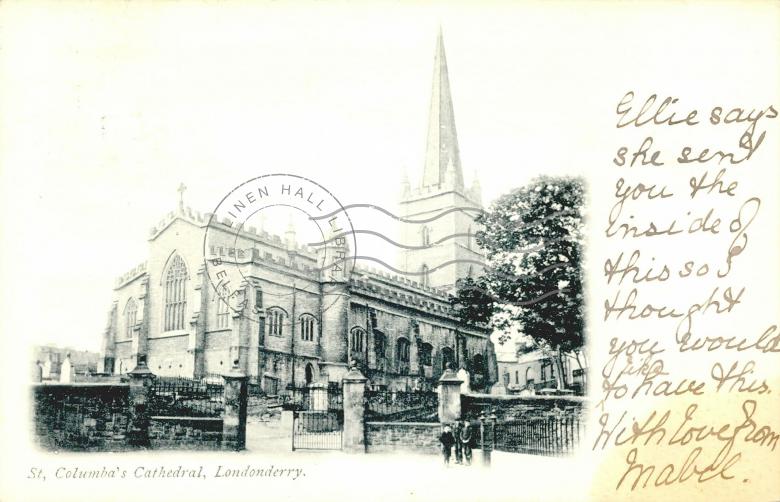 LINEN HALL LIBRARY
BELFAST
Ellie says
she sent
you the
inside of
this so I
thought
you would
like
to have this.
With love from
Mabel.
St, Columba's Cathedral, Londonderry.